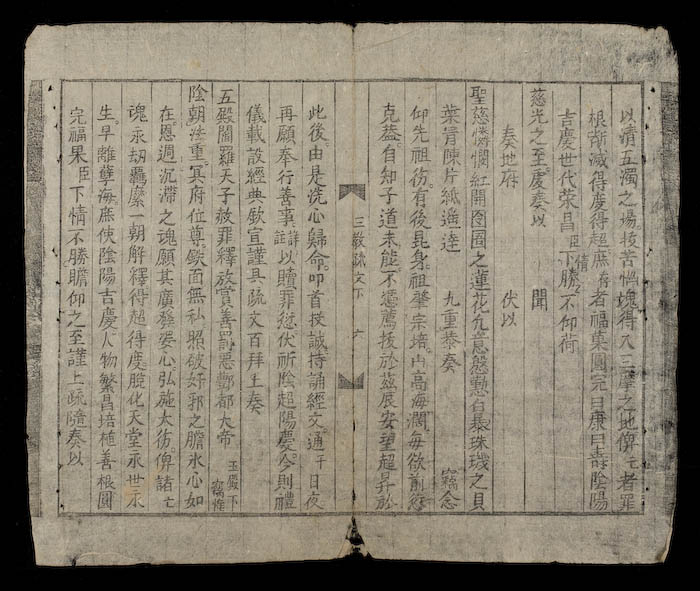 以濟五濁之場拔苦惱魂得入三摩之地俾亡者罪
根漸滅得度得超庶存者福菓圓完曰康曰壽陰陽
吉慶世代荣昌臣下情勝不仰荷
慈光之至慶奏以　聞
奏地府　伏以
聖慈憐憫紅開囹圄之蓮花允意慇懃白表珠璣之貝
葉膏陳片紙遙達　九重恭奏　竊念
仰先祖彷有後昆身祖肇宗培山高海濶每欲前愆
克蓋自知子道未能不憑薦拔於茲辰安望超昇於
三教疏文下　六
此後由是洗心歸命叩首投誠持誦經文通于日夜
再願奉行善事詳註以贖罪愆伏祈陰超陽慶今則禮
儀載設經典欽宣謹具疏文百拜上奏
五殿閻羅天子赦罪釋放賞善罰惡酆都大帝　玉殿下　竊惟
陰朝法重冥府位尊鐵面無私照破奸邪之膽氷心如
在恩週沉滯之魂願其廣發婆心弘施大彷俾諸亡
魂永劫羈縻一朝解釋得超得度脫化天堂永世永
生早離孽海庶使陰陽吉慶人物繁昌培植善根圓
完福果臣下情不勝瞻仰之至謹上疏隨奏以